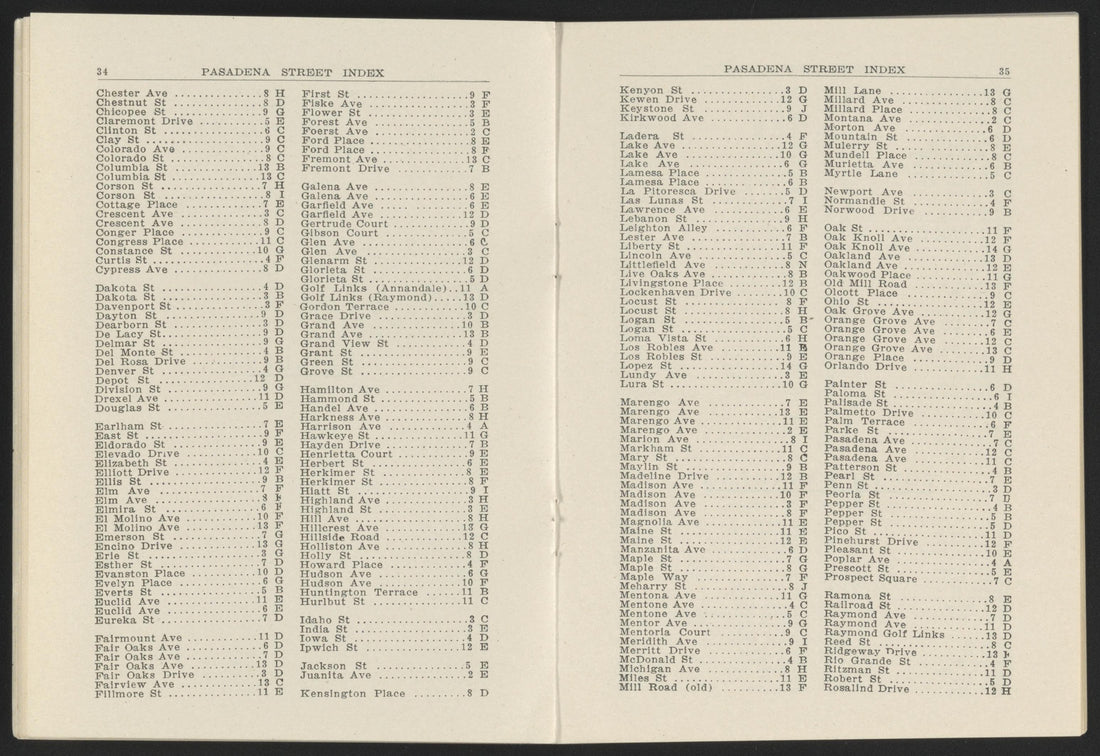 34
PASADENA STREET INDEX
Chester Ave ..............8 H
Chestnut St ..............8 D
Chicopee St ..............9 G
Claremont Drive ..........5 E
Clinton St ...............6 C
Clay St ..................9 C
Colorado Ave .............9 C
Colorado St ..............8 C
Columbia St .............13 B
Columbia St .............13 C
Corson St ................7 H
Corson St ................8 I
Cottage Place ............7 E
Crescent Ave .............3 C
Crescent Ave .............8 D
Conger Place .............9 C
Congress Place ..........11 C
Constance St ............10 G
Curtis St ................4 F
Cypress Ave ..............8 D
Dakota St ................4 D
Dakota St ................3 B
Davenport St .............3 F
Dayton St ................9 D
Dearborn St ..............3 D
De Lacy St ...............9 D
Delmar St ................9 G
Del Monte St .............4 B
Del Rosa Drive ...........9 B
Denver St ................4 G
Depot St ................12 D
Division St ..............9 G
Drexel Ave ..............11 D
Douglas St ...............5 E
Earlham St ...............7 E
East St ..................9 F
Eldorado St ..............9 E
Elevado Drive ...........10 C
Elizabeth St .............4 E
Elliott Drive ...........12 F
Ellis St .................9 B
Elm Ave ..................7 F
Elm Ave ..................8 F
Elmira St ................6 F
El Molino Ave ...........10 F
El Molino Ave ...........13 F
Emerson St ...............7 G
Encino Drive ............13 G
Erie St ..................3 G
Esther St ................7 D
Evanston Place ..........10 D
Evelyn Place .............6 G
Everts St ................5 B
Euclid Ave ..............11 E
Euclid Ave ...............6 E
Eureka St ................7 D
Fairmount Ave ...........11 D
Fair Oaks Ave ............6 D
Fair Oaks Ave ............7 D
Fair Oaks Ave ...........13 D
Fair Oaks Drive ..........3 D
Fairview Ave ............13 C
Fillmore St .............11 E
First St .................9 F
Fiske Ave ................3 F
Flower St ................3 E
Forest Ave ...............5 B
Foerst Ave ...............2 C
Ford Place ...............8 E
Ford Place ...............8 F
Fremont Ave .............13 C
Fremont Drive ............7 B
Galena Ave ...............8 E
Galena Ave ...............6 E
Garfield Ave .............6 E
Garfield Ave ............12 D
Gertrude Court ...........9 D
Gibson Court .............5 C
Glen Ave .................6 C
Glen Ave .................3 C
Glenarm St ..............12 D
Glorieta St ..............6 D
Glorieta St ..............5 D
Golf Links (Annandale)..11 A
Golf Links (Raymond)....13 D
Gordon Terrace ..........10 C
Grace Drive ..............3 D
Grand Ave ...............10 B
Grand Ave ...............13 B
Grand View St ............4 D
Grant St .................9 E
Green St .................9 C
Grove St .................9 C
Hamilton Ave .............7 H
Hammond St ...............5 B
Handel Ave ...............6 B
Harkness Ave .............8 H
Harrison Ave .............4 A
Hawkeye St ..............11 G
Hayden Drive .............7 B
Henrietta Court ..........9 E
Herbert St ...............6 E
Herkimer St ..............8 E
Herkimer St ..............8 F
Hiatt St .................9 I
Highland Ave .............3 H
Highland St ..............3 E
Hill Ave .................8 H
Hillcrest Ave ...........13 G
Hillside Road ...........12 C
Holliston Ave ............8 H
Holly St .................8 D
Howard Place .............4 F
Hudson Ave ...............6 G
Hudson Ave ..............10 F
Huntington Terrace ......11 B
Hurlbut St ..............11 C
Idaho St .................3 C
India St .................3 E
Iowa St ..................4 D
Ipwich St ...............12 E
Jackson St ...............5 E
Juanita Ave ..............2 E
Kensington Place .........8 D
PASADENA STREET INDEX
35
Kenyon St ................3 D
Kewen Drive .............12 G
Keystone St ..............9 J
Kirkwood Ave .............6 D
Ladera St ................4 F
Lake Ave ................12 G
Lake Ave ................10 G
Lake Ave .................6 G
Lamesa Place .............5 B
Lamesa Place .............6 B
La Pitoresca Drive .......5 D
Las Lunas St .............7 I
Lawrence Ave .............6 E
Lebanon St ...............9 H
Leighton Alley ...........6 F
Lester Ave ...............7 B
Liberty St ..............11 F
Lincoln Ave ..............5 C
Littlefield Ave ..........8 N
Live Oaks Ave ............8 B
Livingstone Place .......12 B
Lockenhaven Drive .......10 C
Locust St ................8 F
Locust St ................8 H
Logan St .................5 B
Logan St .................5 C
Loma Vista St ............6 H
Los Robles Ave ..........11 E
Los Robles St ............9 E
Lopez St ................14 G
Lundy Ave ................3 E
Lura St .................10 G
Marengo Ave ..............7 E
Marengo Ave .............13 E
Marengo Ave .............11 E
Marengo Ave ..............2 E
Marion Ave ...............8 I
Markham St ..............11 C
Mary St ..................8 C
Maylin St ................9 B
Madeline Drive ..........12 B
Madison Ave .............11 F
Madison Ave .............10 F
Madison Ave ..............3 F
Madison Ave ..............8 F
Magnolia Ave ............11 E
Maine St ................11 E
Maine St ................12 E
Manzanita Ave ............6 D
Maple St .................7 G
Maple St .................8 G
Maple Way ................7 F
Meharry St ...............8 J
Mentona Ave .............11 G
Mentone Ave ..............4 C
Mentone Ave ..............5 C
Mentor Ave ...............9 G
Mentoria Court ...........9 C
Meridith Ave .............9 I
Merritt Drive ............6 F
McDonald St ..............4 B
Michigan Ave .............8 H
Miles St ................11 E
Mill Road (old) .........13 F
Mill Lane ...............13 G
Millard Ave ..............8 C
Millard Place ............8 C
Montana Ave ..............2 C
Morton Ave ...............6 D
Mountain St ..............6 D
Mulerry St ...............8 E
Mundell Place ............8 C
Murietta Ave .............6 B
Myrtle Lane ..............5 C
Newport Ave ..............3 C
Normandie St .............4 F
Norwood Drive ............9 B
Oak St ..................11 F
Oak Knoll Ave ...........12 F
Oak Knoll Ave ...........14 G
Oakland Ave .............13 D
Oakland Ave .............12 E
Oakwood Place ...........11 G
Old Mill Road ...........13 F
Olcott Place .............9 C
Ohio St .................12 E
Oak Grove Ave ...........12 G
Orange Grove Ave .........7 C
Orange Grove Ave .........6 E
Orange Grove Ave ........12 C
Orange Grove Ave ........13 C
Orange Place .............9 D
Orlando Drive ...........11 H
Painter St ...............6 D
Paloma St ................6 I
Palisade St ..............4 B
Palmetto Drive ..........10 C
Palm Terrace .............6 F
Parke St .................7 E
Pasadena Ave .............7 C
Pasadena Ave ............12 C
Pasadena Ave ............11 C
Patterson St .............4 B
Pearl St .................7 E
Penn St ..................3 D
Peoria St ................7 D
Pepper St ................4 B
Pepper St ................5 B
Pepper St ................5 D
Pico St .................11 D
Pinehurst Drive .........12 F
Pleasant St .............10 E
Poplar Ave ...............4 A
Prescott St ..............5 E
Prospect Square ..........7 C
Ramona St ................8 E
Railroad St .............12 D
Raymond Ave ..............7 D
Raymond Ave .............11 D
Raymond Golf Links ......13 D
Reed St ..................8 C
Ridgeway Drive ..........13 F
Rio Grande St ............4 F
Ritzman St ..............11 D
Robert St ................5 D
Rosalind Drive ..........12 H